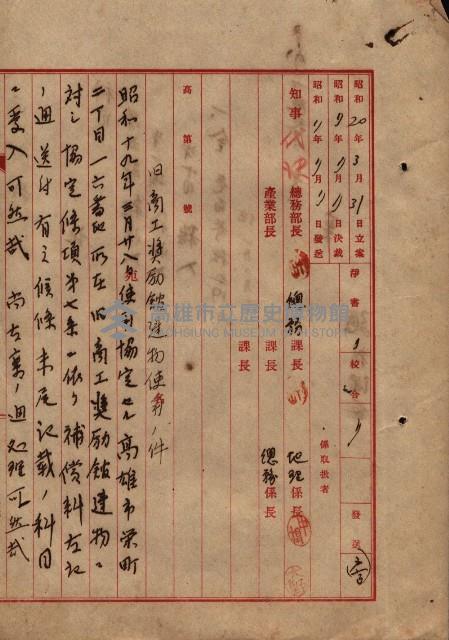 昭和20年3月31日立案
昭和 年 月 日決裁
昭和 年 月 日發送
淨書
校合
發送
知事
代決
總務部長
產業部長
總務課長
課長
課長
係取扱者
地理係長
總務係長
高第 號
旧商工奬勵館建物使用ノ件
昭和十九年三月廿八日使用協定セル高雄市栄町
二丁目一六番地所在旧商工奬励館建物ニ
対シ協定條項第七条ニ依リ補償料左記
ノ通送付有之候條末尾記載ノ科目
ニ受入可然哉 尚左案ノ通処理可然哉
高雄市立歷史博物館
KAOHSIUNG MUSEUM OF HISTORY